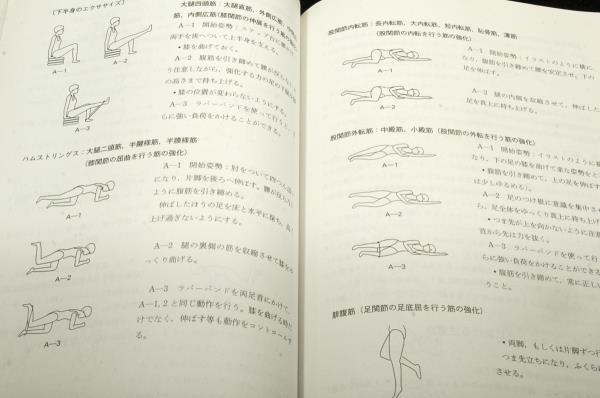 〔下半身のエクササイズ〕
大腿四頭筋：大腿直筋、外側広筋、
筋、内側広筋（膝関節の伸展を行う筋の強化）
A—1　開始姿勢：ステップ台に腰
両手を後へついて上半身を支える。
・膝を曲げておく。
A—2　腹筋を引き締めて腰が反らない
う注意しながら、強化する方の足の下腿を
の高さまで持ち上げる。
・膝の位置が変わらないようにする。
A—3　ラバーバンドを使って行うと、
らに強い負荷をかけることができる。
A—1
A—2
A—3
ハムストリングス：大腿二頭筋、半腱様筋、半膜様筋
（膝関節の屈曲を行う筋の強化）
A—1　開始姿勢：肘をついて四つん這
になり、片脚を後ろへ伸ばす。腰が反らない
ように腹筋を引き締める。
伸ばしたほうの足を床と水平に保ち、
上げ過ぎないようにする。
A—1
A—2　腿の裏側の筋を収縮させて膝をゆ
っくり曲げる。
A—2
A—3　ラバーバンドを両足首にかけて、
A—1, 2と同じ動作を行う。膝を曲げる時だ
けでなく、伸ばす等も動作をコントロールす
る。
A—3
股関節内転筋：長内転筋、大内転筋、短内転筋、恥骨筋、薄筋
（股関節の内転を行う筋の強化）
A—1　開始姿勢：イラストのように横に
なり、腹筋を引き締めて腰を安定させ、下の
足を伸ばす。
A—1
A—3　腿の内側を収縮させて、伸ばした
足を真上に持ち上げる。
A—2
股関節外転筋：中殿筋、小殿筋（股関節の外転を行う筋の強化）
A—1　開始姿勢：イラストのように横
なり、下の足の膝を曲げて楽な姿勢をと
・腹筋を引き締めて、上の足を伸ばす
は少しゆるめる）。
A—1
A—2　足のつけ根に意識を集中させ
ら、足全体をゆっくり真上に持ち上げ
・つま先が上を向かないように注意
首から先は力を抜く。
A—2
A—3　ラバーバンドを使って行
らに強い負荷をかけることができる
・腹筋を引き締めて、常に正しい
うこと。
A—3
腓腹筋（足関節の足底屈を行う筋の強化）
・両脚、もしくは片脚ずつ行
つま先立ちになり、ふくら
させる。